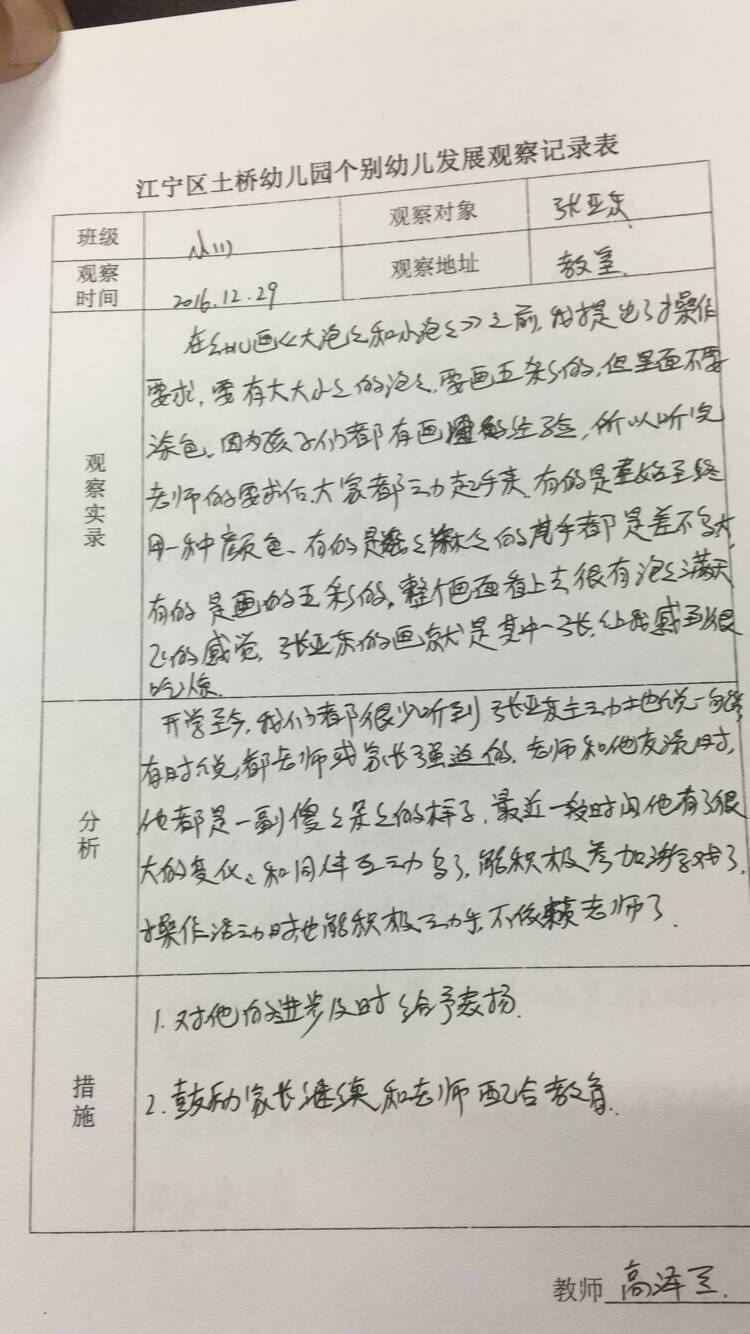 江宁区土桥幼儿园个别幼儿发展观察记录表
班级 小(1) 观察对象 张亚东
观察时间 2016.12.29 观察地址 教室
观察实录
在幼儿画《大泡泡和小泡泡》之前,我提出了操作
要求,要有大大小小的泡泡,要画五彩的,但里面不要
涂色。因为孩子们都有画的经验,所以听完
老师的要求后,大家都动起手来。有的是自始至终
用一种颜色、有的是泡泡的几乎都是差不多大,
有的是画的五彩的,整个画面看上去很有泡泡满天
飞的感觉,张亚东的画就是其中一张,让我感到很
吃惊。
分析
开学至今,我们都很少听到张亚东主动地说一句话,
有时说,都老师或家长强迫的。老师和他交流时,
他都是一副傻傻呆呆的样子,最近一段时间他有了很
大的变化,和同伴互动多了,能积极参加游戏了,
操作活动时也能积极动手,不依赖老师了。
措施
1.对他的进步及时给予表扬.
2.鼓励家长继续和老师配合教育.
教师 高泽兰.